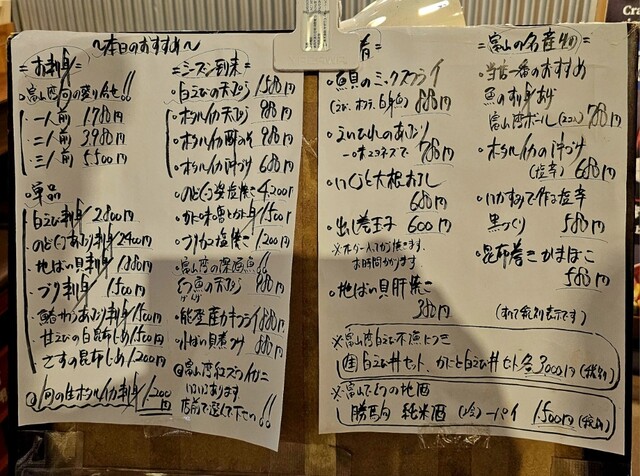 ～本日のおすすめ～
=お刺身=
・富山湾旬の盛り合せ!!
・一人前 1.780円
・二人前 3.980円
・三人前 5.500円
・単品
白えび刺身 2.800円
のどぐろあぶり刺身 2400円
地ばい貝刺身 1.880円
ブリ刺身 1.500円
甘えびの白昆布しめ 1.500円
さすの昆布しめ 1.200円
@旬の生ホタルイカ刺身 1.200円
=シーズン到来=
・白えびの天ぷら 1.580円
・ホタルイカ天ぷら 980円
・ホタルイカ酢みそ 980円
・ホタルイカ沖づけ 680円
・のどぐろ姿塩焼 4.200円
・かに味噌とかに身 1.500円
・ブリカマ塩焼 1.200円
・富山湾の深海魚!!
げんげ
・能登産カキフライ 1.880円
・小ばい貝煮つけ 880円
@富山湾紅ズワイガニ
いろいろあります
店前で選んで下さい!!
肴
・魚貝のミックスフライ
880円
・えいひれのあぶり
一味マヨネーズで 780円
・いくらと大根おろし
680円
・出し巻玉子 600円
※オーダー入ってから焼きます。
お時間かかります。
・地ばい貝肝焼
380円
=富山の名産=
・当店一番のおすすめ
魚のすり身あげ
富山湾ボール (5コ) 780円
・ホタルイカの沖づけ
(塩辛) 680円
・いかすみで作る塩辛
黒づくり 580円
・昆布巻きかまぼこ
580円
(すべて税別表示です)
※富山湾白えび不漁につき
白えび丼セット、かにと白えび丼セット各3000円(税別)
※富山でとっておきの地酒
勝駒 純米酒 一パイ 1.500円(税別)